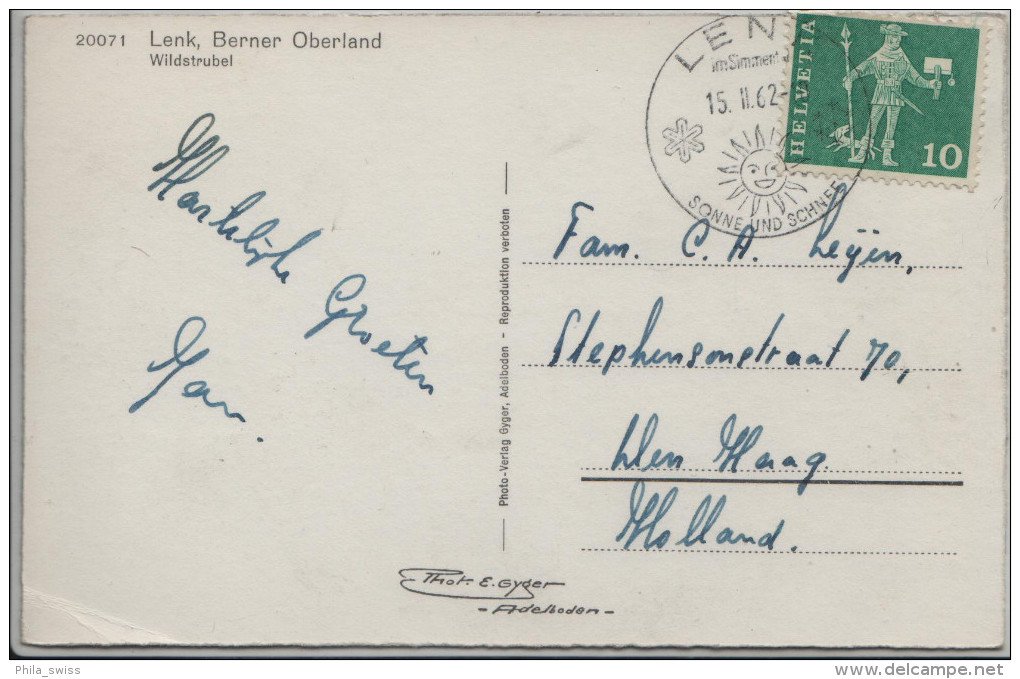 20071 Lenk, Berner Oberland
Wildstrubel
LENK
im Simmental
15. II. 62
SONNE UND SCHNEE
HELVETIA
10
Hartelijke
Groeten
Jan.
Photo-Verlag Gyger, Adelboden - Reproduktion verboten
Fam. C. A. Leijen,
Stephensonstraat 70,
Den Haag.
Holland.
Phot. E. Gyger
- Adelboden -
Phila_swiss
www.delcampe.net